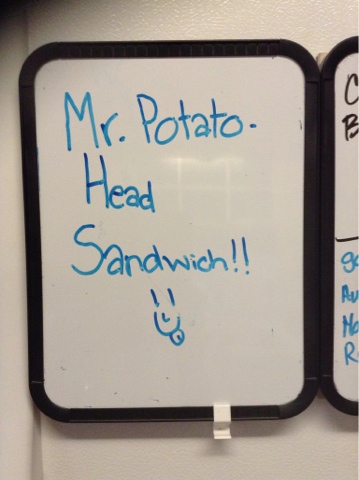 Mr. Potato-
Head
Sandwich!!
C
B
go
Au
Ho
R